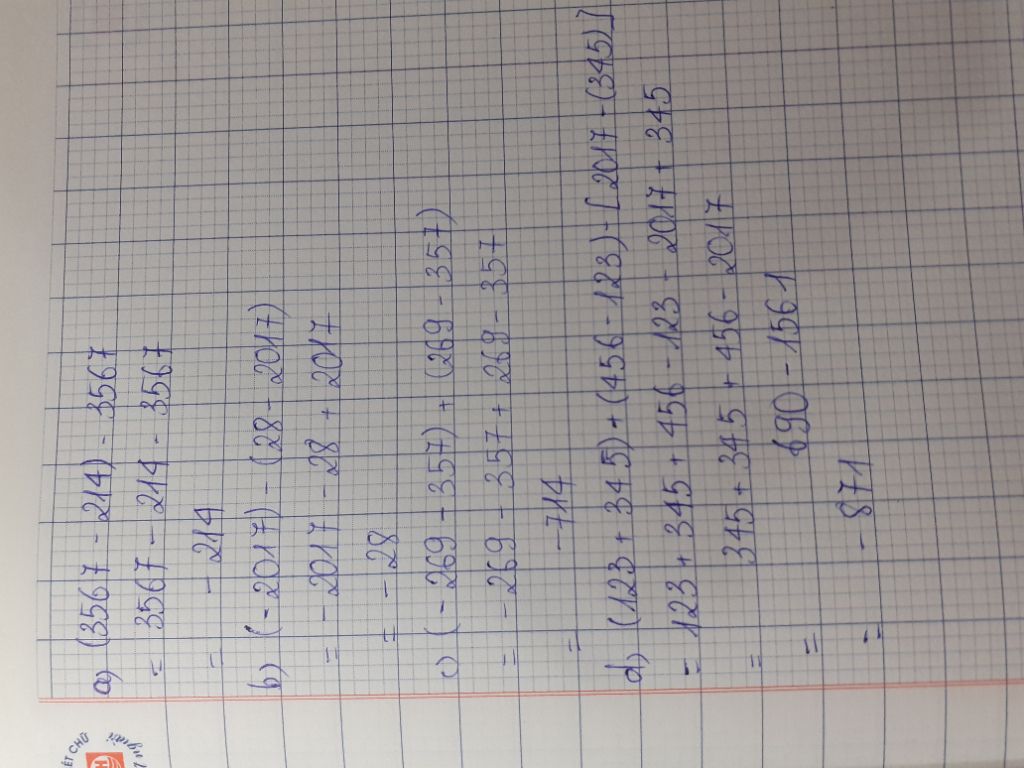 a) (3567 - 214) - 3567
= 3567 - 214 - 3567
= - 214
b) (-2017) - (28 - 2017)
= - 2017 - 28 + 2017
= - 28
c) (- 269 - 357) + (269 - 357)
= - 269 - 357 + 269 - 357
= - 714
d) (123 + 345) + (456 - 123) - [2017 - (345)]
= 123 + 345 + 456 - 123 - 2017 + 345
= 345 + 345 + 456 - 2017
= 690 - 1561
= - 871
ẾT CHỮ